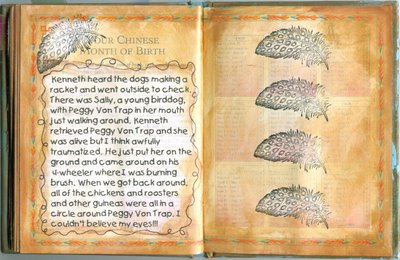 YOUR CHINESE
MONTH OF BIRTH
Kenneth heard the dogs making a
racket and went outside to check.
There was Sally, a young birddog,
with Peggy Von Trap in her mouth
just walking around, Kenneth
retrieved Peggy Von Trap and she
was alive but I think awfully
traumatized. He just put her on the
ground and came around on his
4-wheeler where I was burning
brush. When we got back around,
all of the chickens and roosters
and other guineas were all in a
circle around Peggy Von Trap. I
couldn't believe my eyes!!!